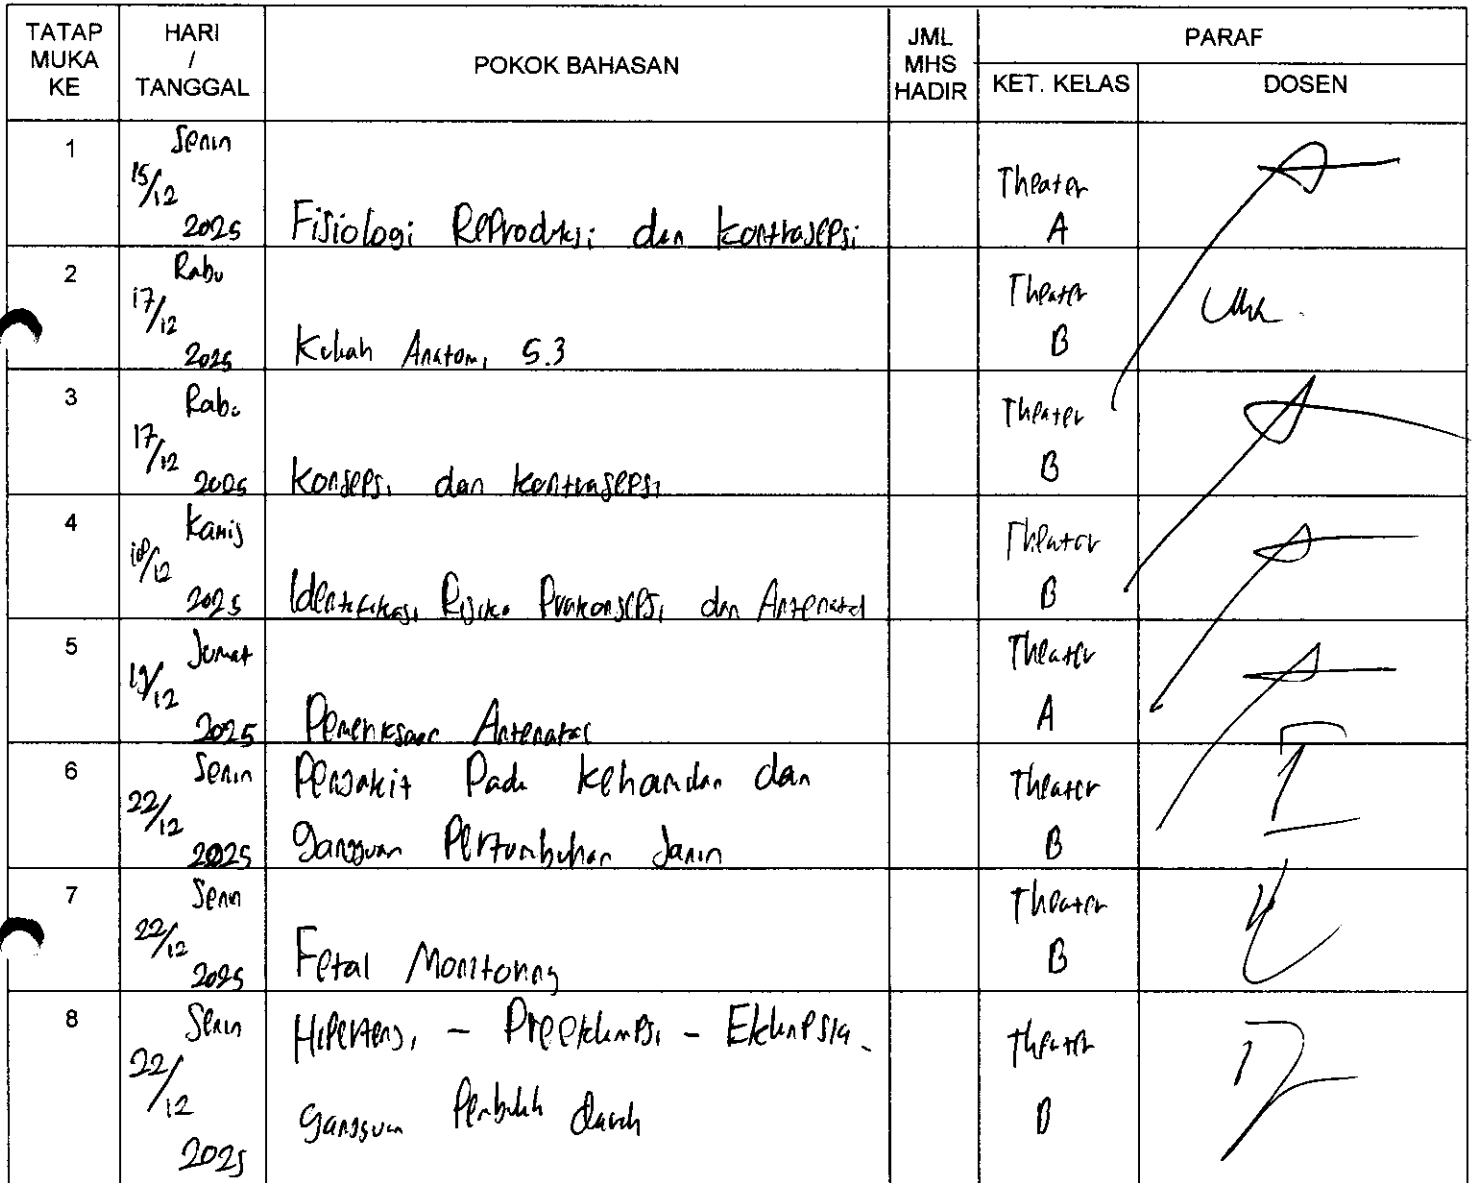 TATAP MUKA KE
HARI / TANGGAL
POKOK BAHASAN
JML MHS HADIR
PARAF
KET. KELAS
DOSEN
1
Senin
15/12
2025
Fisiologi Reproduksi dan kontrasepsi
Theater
A
2
Rabu
17/12
2025
Kuliah Anatomi 5.3
Theater
B
3
Rabu
17/12
2025
Konsepsi dan kontrasepsi
Theater
B
4
Kamis
18/12
2025
Identifikasi Risiko Prakonsepsi dan Antenatal
Theater
B
5
Jumat
19/12
2025
Pemeriksaan Antenatal
Theater
A
6
Senin
22/12
2025
Penyakit Pada kehamilan dan
gangguan Pertumbuhan Janin
Theater
B
7
Senin
22/12
2025
Fetal Monitoring
Theater
B
8
Senin
22/12
2025
Hipertensi - Preeklampsi - Eklampsia -
gangguan Pembuluh darah
Theater
B